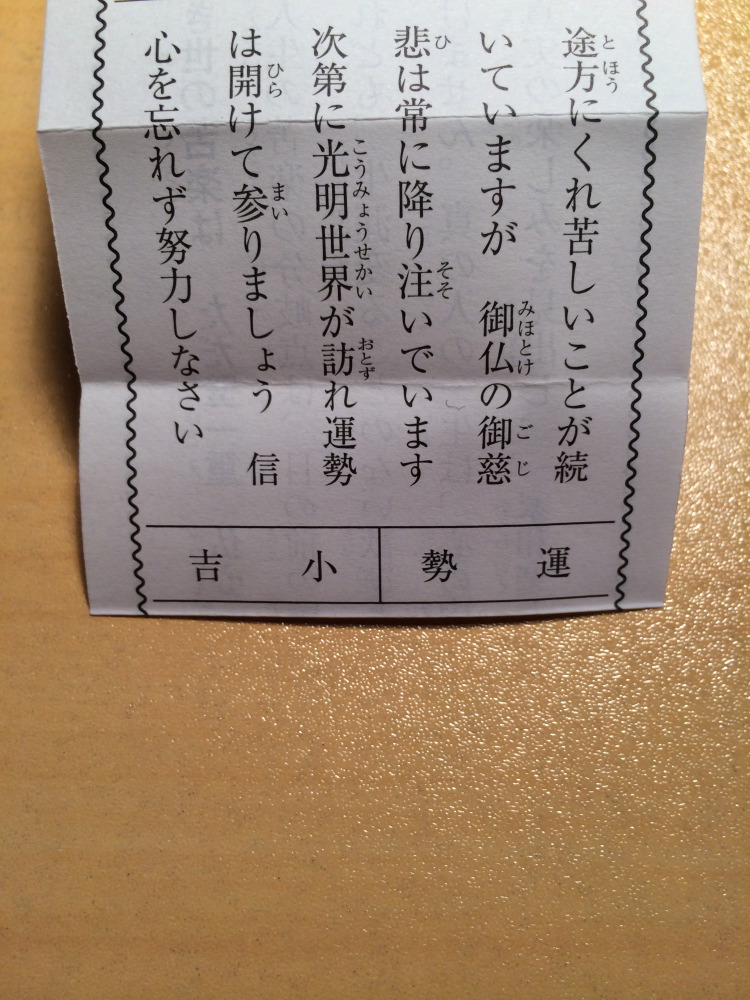 途方にくれ苦しいことが続
いていますが　御仏の御慈
悲は常に降り注いでいます
次第に光明世界が訪れ運勢
は開けて参りましょう　信
心を忘れず努力しなさい
運勢
小吉